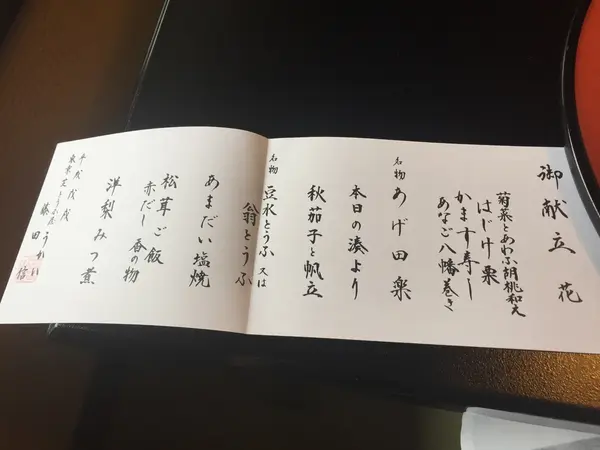 御献立 花
菊菜とあわふ胡桃和え
はじけ栗
かます寿し
あなご八幡巻き
名物 あげ田楽
本日の湊より
秋茄子と帆立
名物 豆水とうふ 又は
翁とうふ
あまだい塩焼
松茸ご飯
赤だし 香の物
洋梨みつ煮
平成戊戌
東京芝 とうふ屋うかい
藤田